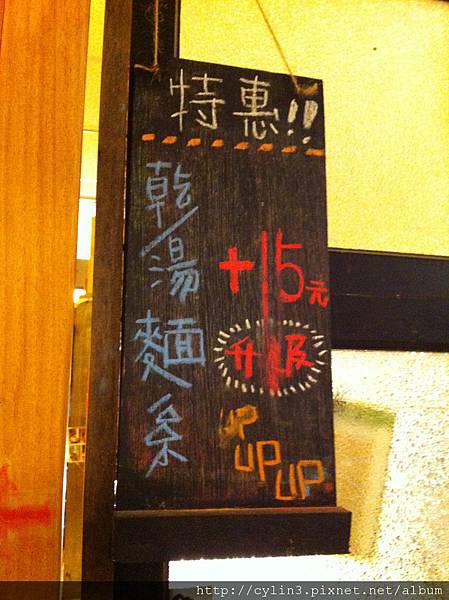 特惠!!
乾/湯麵系
+15元
升級
UP
UP
UP
http://cylin3.pixnet.net/album